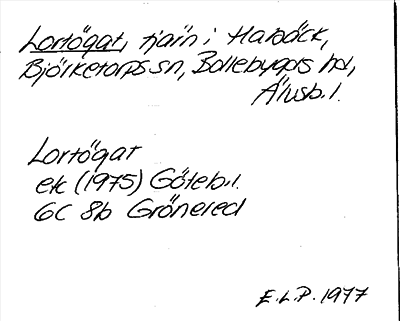 Lortögat, tjärn i Harbäck,
Björketorps sn, Bollebygds hd,
Älvsb. l.
Lortögat
ek (1975) Göteb. l.
6C 8b Grönered
E.L.P. 1977